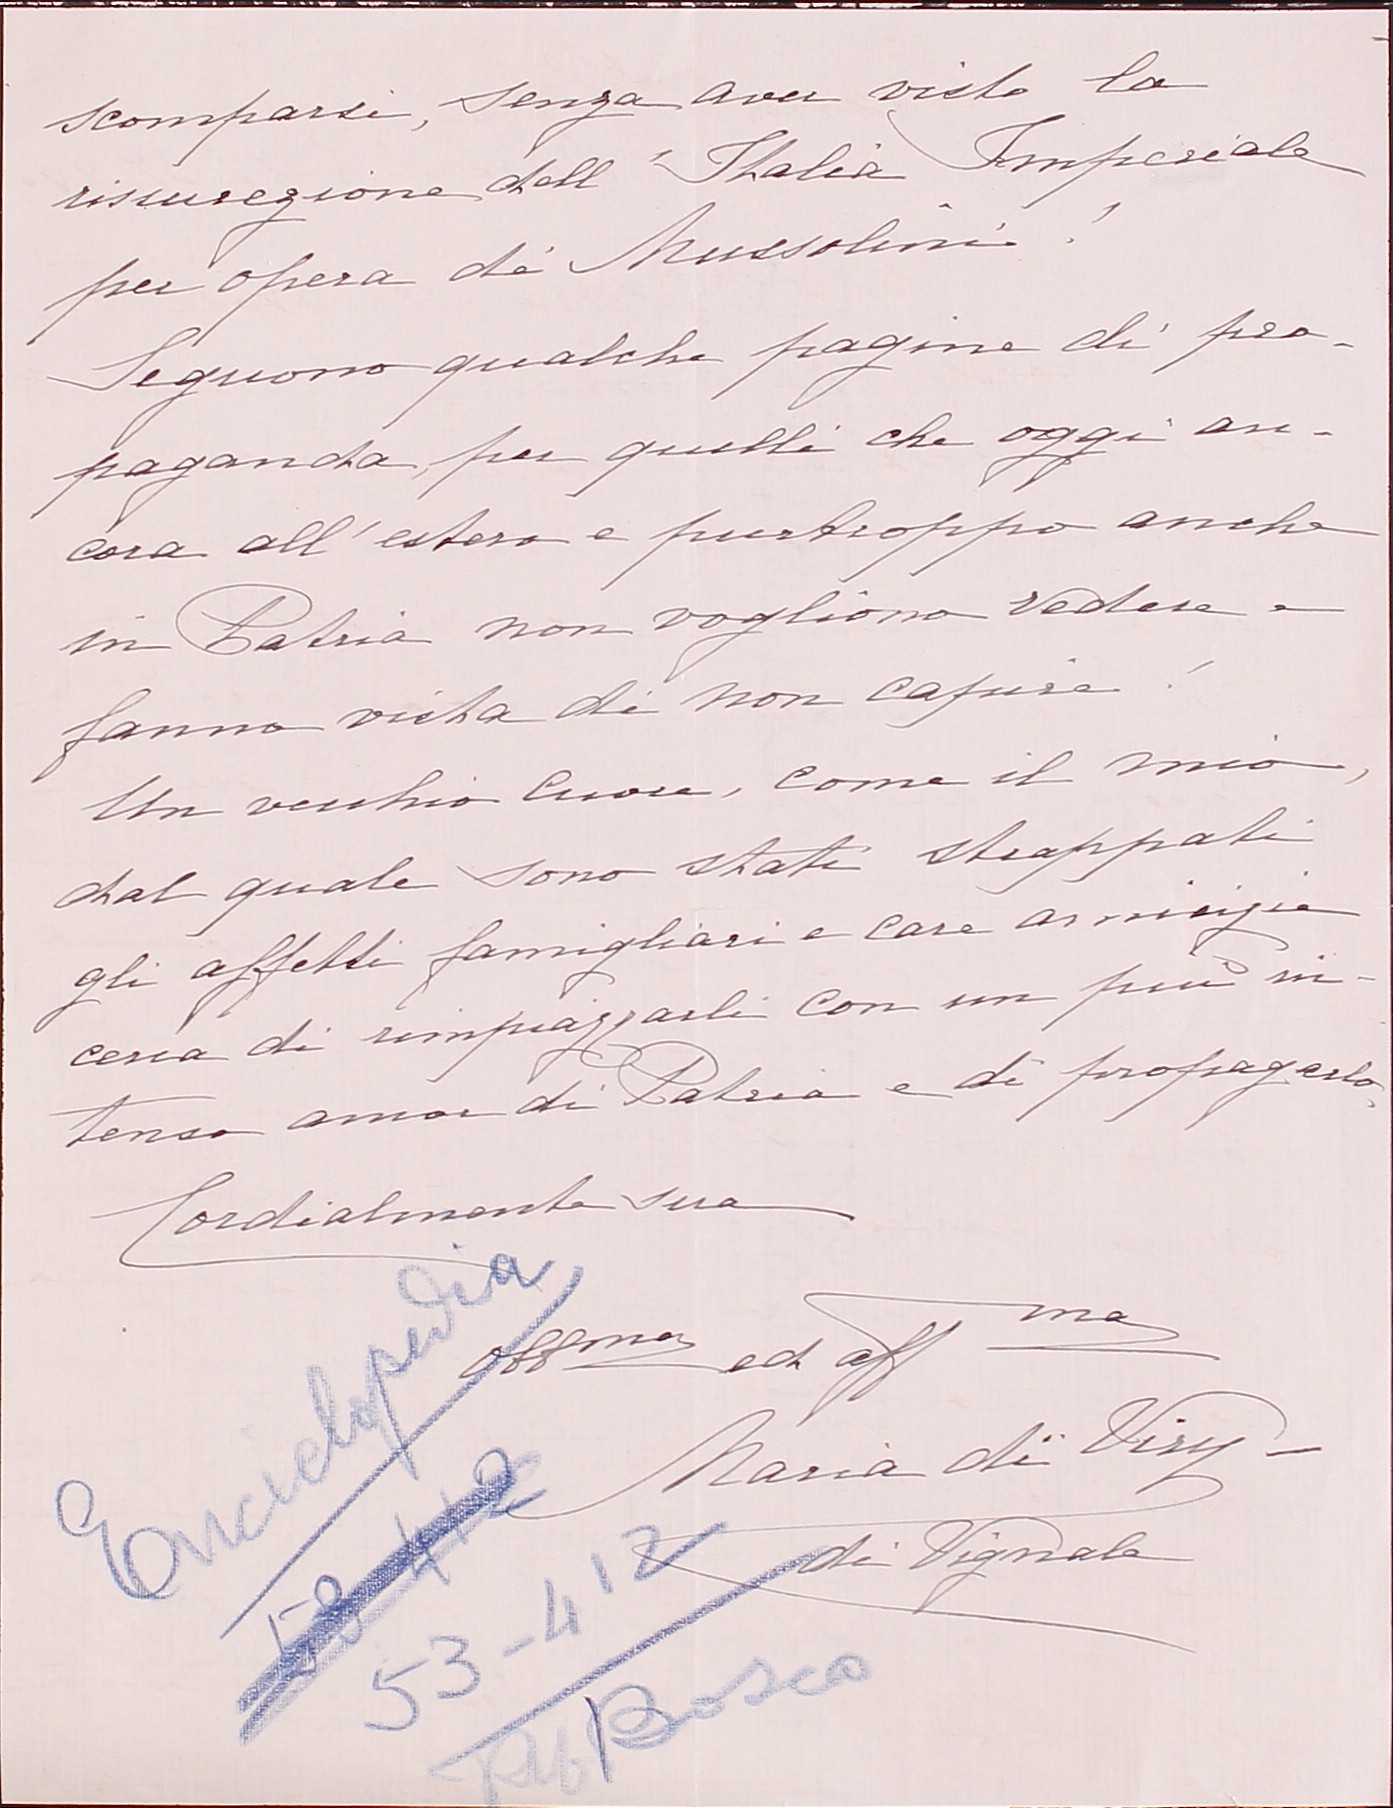 scomparsi, senza aver visto la
risurrezione dell'Italia Imperiale
per opera di Mussolini!
Seguono qualche pagine di pro-
paganda, per quelli che oggi an-
cora all'estero e purtroppo anche
in Patria non vogliono vedere e
fanno vista di non capire!
Un vecchio cuore, come il mio,
dal quale sono stati strappati
gli affetti famigliari e care amicizie
cerca di rimpiazzarli con un più in-
tenso amor di Patria e di propagarlo.
Cordialmente sua
obbma ed affma
Maria di Viry -
di Vignale
Enciclopedia
53-412
Bosco